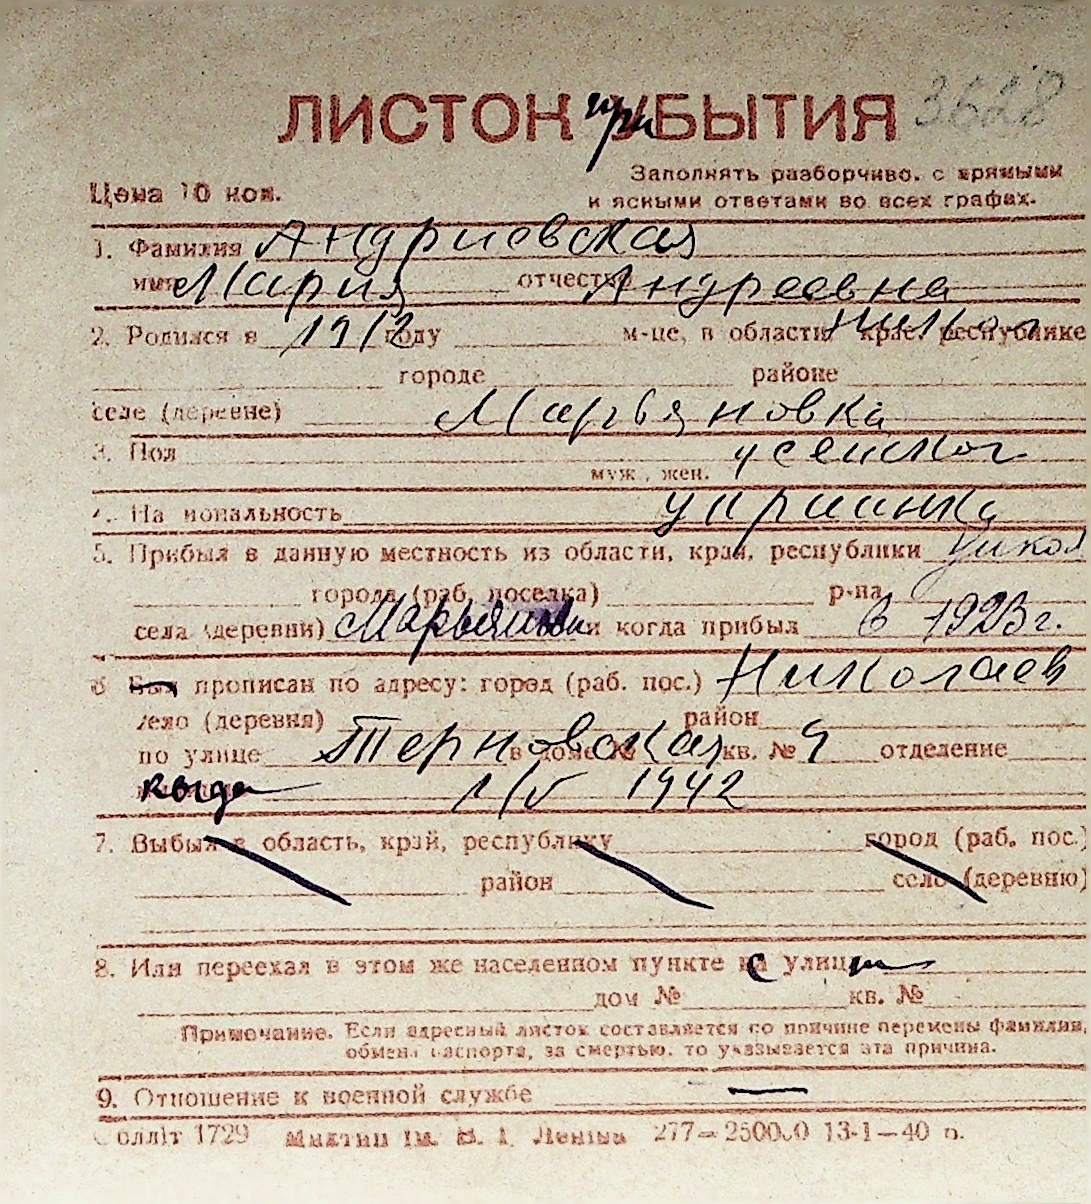 ЛИСТОК при УБЫТИЯ 3628
Цена 10 коп.
Заполнять разборчиво, с прямыми
и ясными ответами во всех графах.
1. Фамилия Андриевская
имя Мария отчество Андреевна
2. Родился в 1912 году м-це, в области, крае, республике Никол
городе районе
селе (деревне) Марьяновка
3. Пол женской
муж., жен.
4. Национальность украинка
5. Прибыл в данную местность из области, край, республики Никол
города (раб. поселка) р-на
села (деревни) и когда прибыл в 1923 г.
6 Был прописан по адресу: город (раб. пос.) Николаев
село (деревня) район
по улице Терновская в доме № кв. № 9 отделение
когда 1/V 1942
7. Выбыл в область, край, республику город (раб. пос.)
район село (деревню)
8. Или переехал в этом же населенном пункте с улицы
дом № кв. №
Примечание. Если адресный листок составляется по причине перемены фамилии,
обмена паспорта, за смертью, то указывается эта причина.
9. Отношение к военной службе —
Обллiт 1729 iм. В. I. Ленiна 277—250000 13-1—40 п.